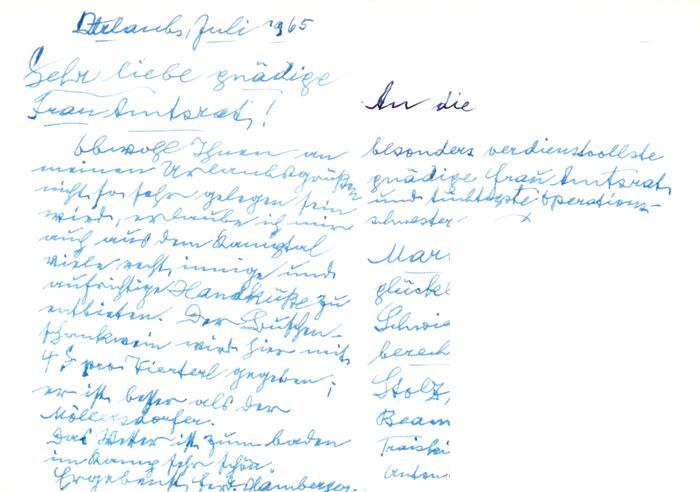 Urlaubs, Juli 1965
Sehr liebe gnädige
Frau Amtsrat!
Obwohl Ihnen an
meinen Urlaubsgrüßen
nicht so sehr gelegen sein
wird, erlaube ich mir
auch aus dem Kamptal
viele recht innige und
aufrichtige Handküße zu
entbieten. Der Buschen-
schankwein wird hier mit
4 S pro Vierterl gegeben;
er ist besser als der
Möllersdorfer.
Das Wetter ist zum baden
im Kamp sehr schön.
Ergebenst, Hamberger.
An die
besonders verdienstvollste
gnädige Frau Amtsrat,
und tüchtigste Operations-
schwester
Mar
glückl
Schwie
berech
Stolz,
Beam
Traiski
Anton